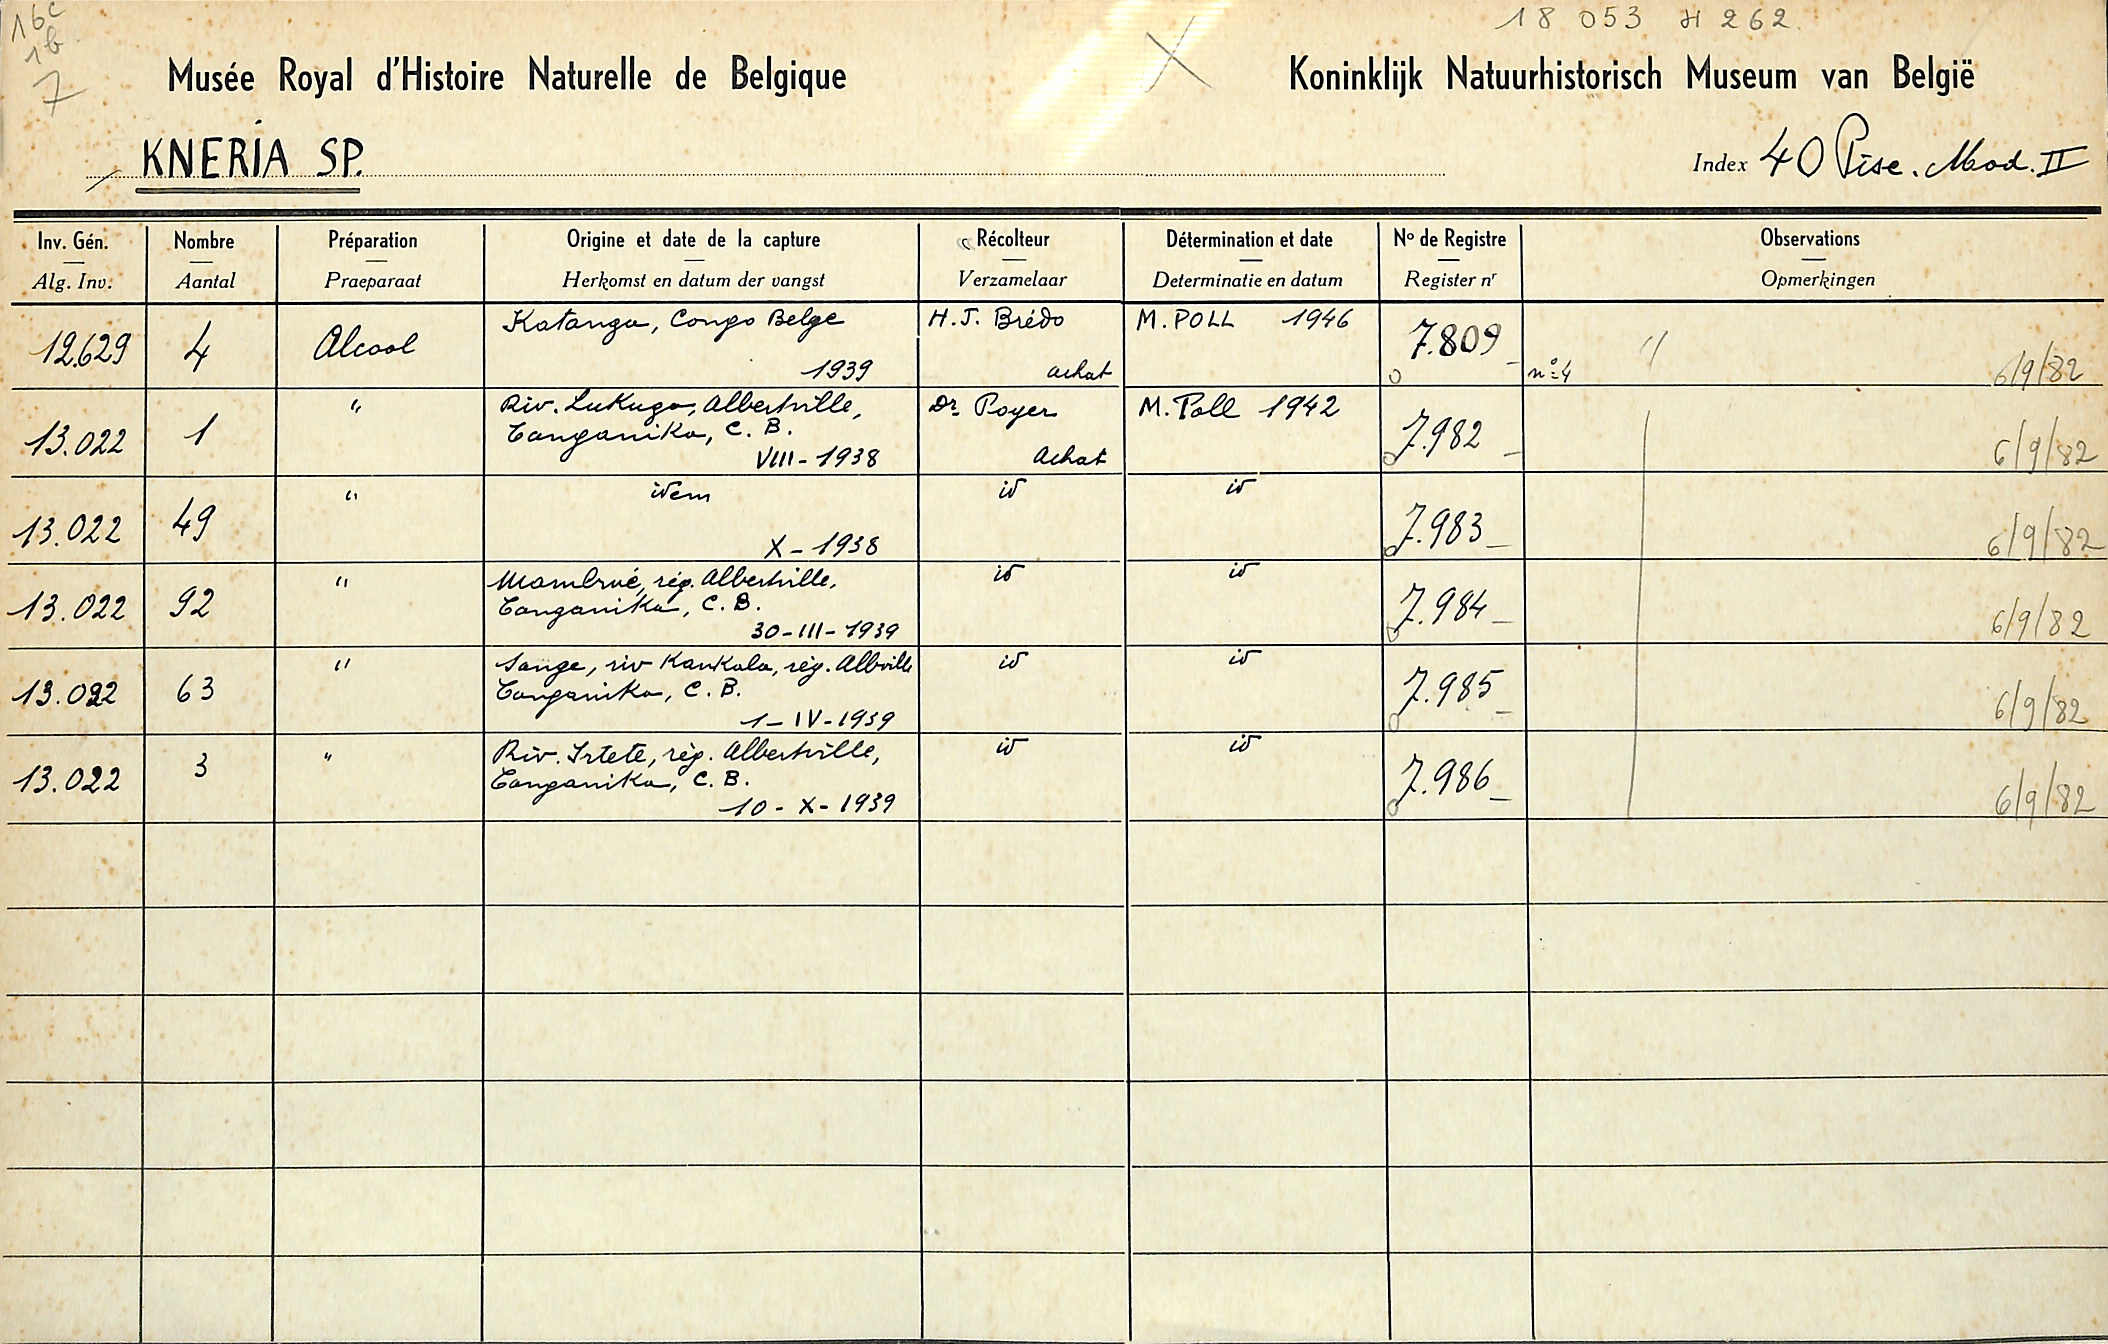 16c
1b
7
18 053 H 262
Musée Royal d'Histoire Naturelle de Belgique
Koninklijk Natuurhistorisch Museum van België
KNERIA SP.
Index 40 Pisc. Mod. II
Inv. Gén. Nombre Préparation Origine et date de la capture Récolteur Détermination et date No de Registre Observations
Alg. Inv. Aantal Praeparaat Herkomst en datum der vangst Verzamelaar Determinatie en datum Register nr Opmerkingen
12.629 4 Alcool Katanga, Congo Belge 1939 H. J. Brédo achat M. POLL 1946 7.809 n° 4 " 6/9/82
13.022 1 " Riv. Lukuga, Albertville, Tanganika, C. B. VIII - 1938 Dr. Poyer Achat M. Poll 1942 7.982 6/9/82
13.022 49 " idem X - 1938 id id 7.983 6/9/82
13.022 92 " rég. Albertville, Tanganika, C. B. 30 - III - 1939 id id 7.984 6/9/82
13.022 63 " Sange, riv Kankala, rég. Albville Tanganika, C. B. 1 - IV - 1939 id id 7.985 6/9/82
13.022 3 " Riv. rég. Albertville, Tanganika, C. B. 10 - X - 1939 id id 7.986 6/9/82